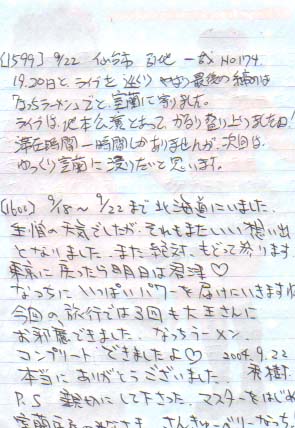 [1599] 9/22 仙台市 一 No174
19.20日と、ライブをめぐり やはり最後の締めは
「なっちラーメン」でと、室蘭に寄りました。
ライブは、地元公演とあって、かなり盛り上りましたね!
滞在時間一時間しかありませんが、次回は、
ゆっくり室蘭に浸りたいと思います。
[1600] 9/18～9/22まで北海道にいました。
生憎の天気でしたが、それもまたいい想い出
となりました。また絶対、もどって参ります。
東京に戻ったら明日は沼津♡
なっちにいっぱいパワーを届けにいきますね
今回の旅行では3回も大王さんに
お邪魔できました、なっちラーメン、
コンプリートできましたよ♡ 2004.9.22
本当にありがとうございました。 秀樹.
P.S 親切にして下さった、マスターをはじめ
室蘭 さんきゅーべりーなっち